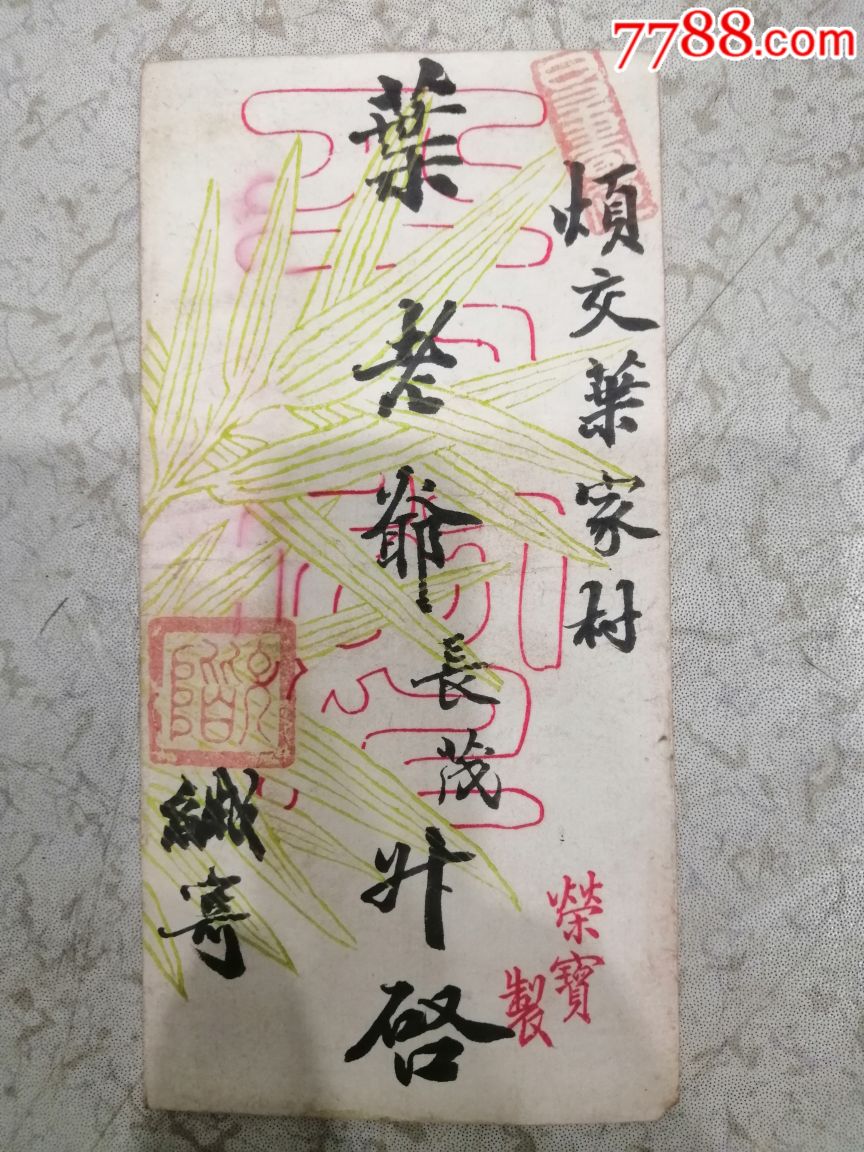 7788.com
煩交葉家村
葉老爺長茂升啓
緘寄
榮寶
製